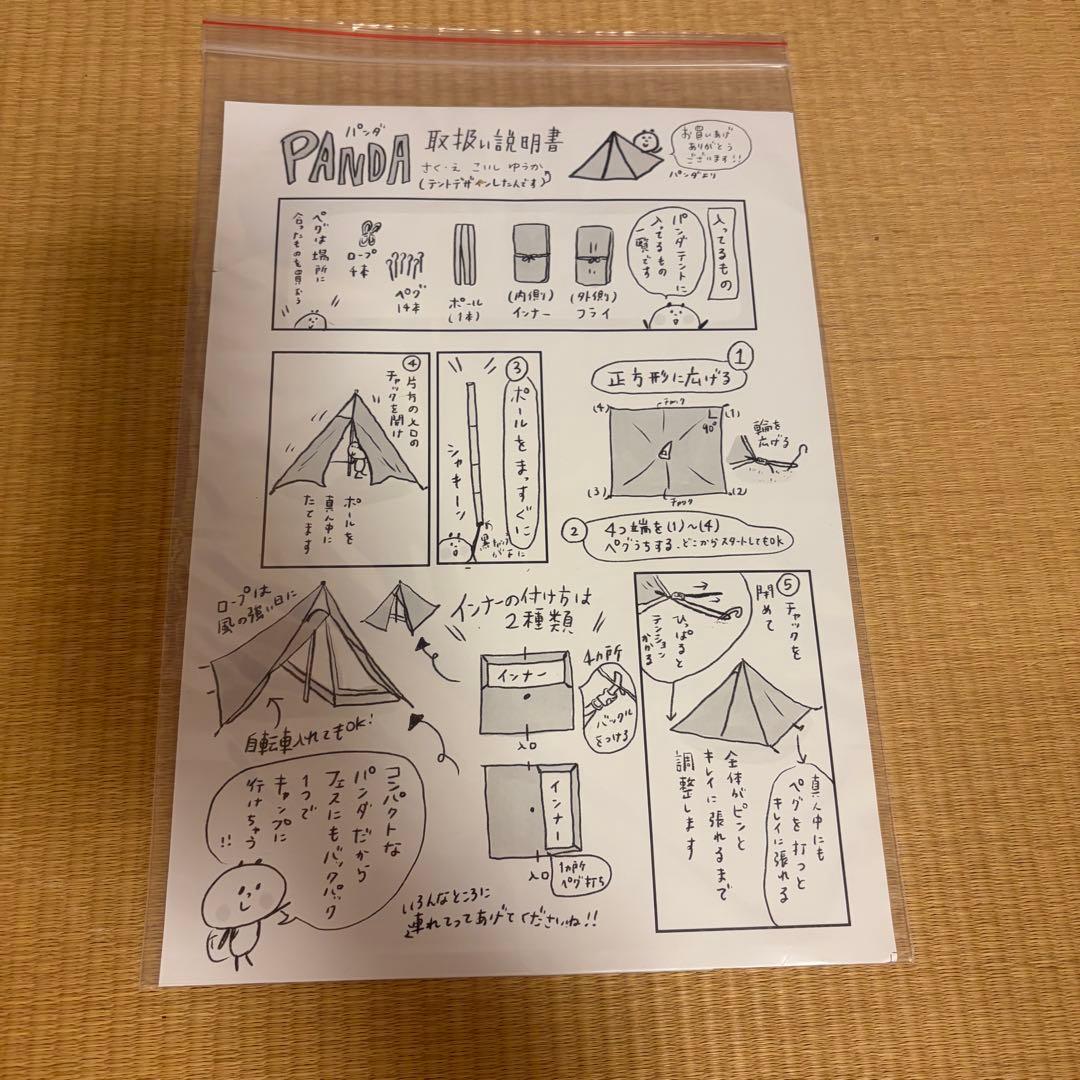 パンダ
PANDA
取扱い説明書
さく・え こいし ゆうか
(テントデザインしたんです)
お買いあげ
ありがとう
ございます!!
パンダより
入ってるもの
パンダテントに
入ってるもの
一覧です
(外側)
フライ
(内側)
インナー
ポール
(1本)
ペグ
14本
ロープ
4本
ペグは場所に
合ったものを買おう
①
正方形に広げる
チャック
(4)
(1)
90°
(3)
(2)
チャック
輪を
広げる
②
4つ端を(1)〜(4)
ペグうちする、どこからスタートしてもOK
③
ポールをまっすぐに
シャキーン
④
片方の入口の
チャックを開け
ポールを
真ん中に
たてます
⑤
チャックを
閉めて
ひっぱると
テンション
かかる
真ん中にも
ペグを打つと
キレイに張れる
全体がピンと
キレイに張れるまで
調整します
インナーの付け方は
2種類
ロープは
風の強い日に
自転車入れてもOK!
インナー
入口
4カ所
バックル
をつける
インナー
入口
1カ所
ペグ打ち
コンパクトな
パンダだから
フェスにもバックパック
1つで
キャンプに
行けちゃう
!!
いろんなところに
連れてってあげてくださいね!!